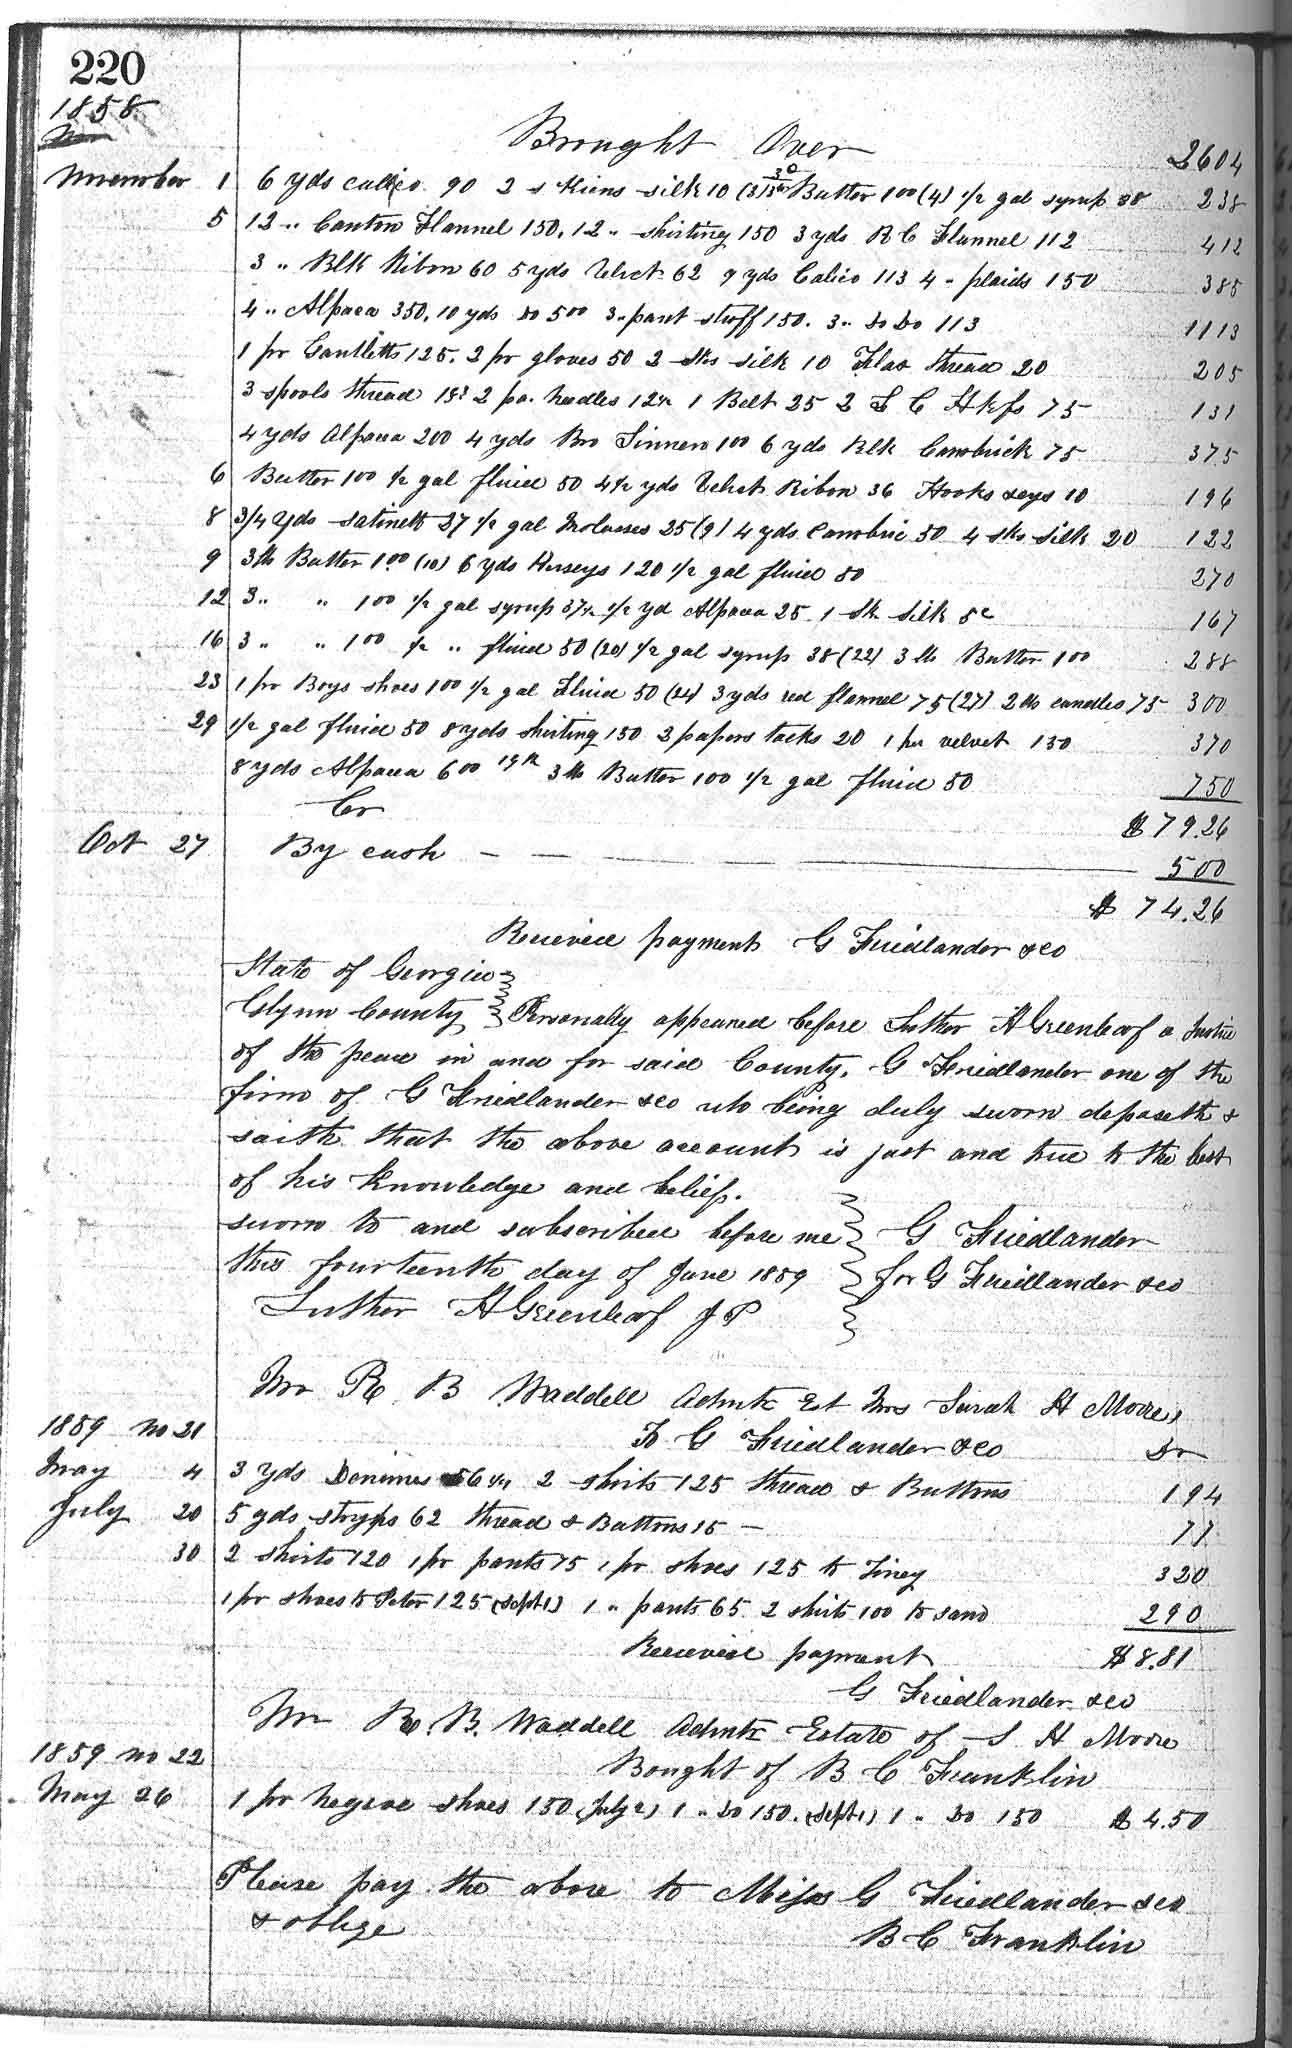 220
1858
Brought Over 2604
November 1 6 yds calico 90 2 skiens silk 10 (3) Butter 100 (4) 1/2 gal syrup 38 238
5 12 " Canton Flannel 150, 12 " shirting 150 3 yds R C Flannel 112 412
3 " Blk Ribon 60 5 yds Velvet 62 9 yds Calico 113 4 " plaids 150 385
4 " Alpaca 350, 10 yds Do 500 3 " pant stuff 150. 3 " Do Do 113 1113
1 pr Gantletts 125. 2 pr gloves 50 2 sks silk 10 Flax thread 20 205
3 spools thread 2 pa. needles 12 1/2 1 Belt 25 2 L C Hkfs 75 131
4 yds Alpaca 200 4 yds Bro Linnen 100 6 yds Blk Cambrick 75 375
6 Butter 100 1/2 gal fluid 50 4 1/2 yds Velvet Ribon 36 Hooks & eys 10 196
8 3/4 yds satinett 27 1/2 gal Molasses 25 (9) 4 yds Cambric 50 4 sks silk 20 122
9 3 lb Butter 1.00 (10) 6 yds Kerseys 120 1/2 gal fluid 50 270
12 3 " " 100 1/2 gal syrup 37 1/2 1/2 yd Alpaca 25 1 sk silk 5c 167
16 3 " " 100 1/2 " fluid 50 (20) 1/2 gal syrup 38 (22) 3 lb Butter 100 288
23 1 pr Boys shoes 100 1/2 gal Fluid 50 (24) 3 yds red flannel 75 (27) 2 lb candles 75 300
29 1/2 gal fluid 50 8 yds shirting 150 2 papers tacks 20 1 velvet 150 370
8 yds Alpacca 600 19th 3 lb Butter 100 1/2 gal fluid 50 750
Cr $79.26
Oct 27 By cash 500
$ 74.26
Received payment G Friedlander & co
State of Georgia
Glynn County Personally appeared before Luther A Greenleaf a Justice
of the peace in and for said County, G Friedlander one of the
firm of G Friedlander & co who being duly sworn deposeth &
saith that the above account is just and true to the best
of his knowledge and belief.
sworn to and subscribed before me G Friedlander
this fourteenth day of June 1859 for G Friedlander & co
Luther A Greenleaf J P
Mr R B Waddell Admtr Est Mrs Sarah H Moore,
1859 no 21 To G Friedlander & co Dr
May 4 3 yds Denimes 56 1/4 2 shirts 125 thread & Buttons 194
July 20 5 yds stryps 62 thread & Buttons 15 77
30 2 shirts 120 1 pr pants 75 1 pr shoes 125 to 320
1 pr shoes to Peter 125 (Sept 1) 1 " pants 65 2 shirts 100 to 290
Received payment $8.81
G Friedlander & co
Mr R. B. Waddell Admtr Estate of S H Moore
1859 no 22 Bought of B C Franklin
May 26 1 pr Negroe shoes 150 (July 2) 1 " Do 150. (Sept 1) 1 " Do 150 $ 4.50
Please pay the above to Messrs G Friedlander & co
& oblige B C Franklin